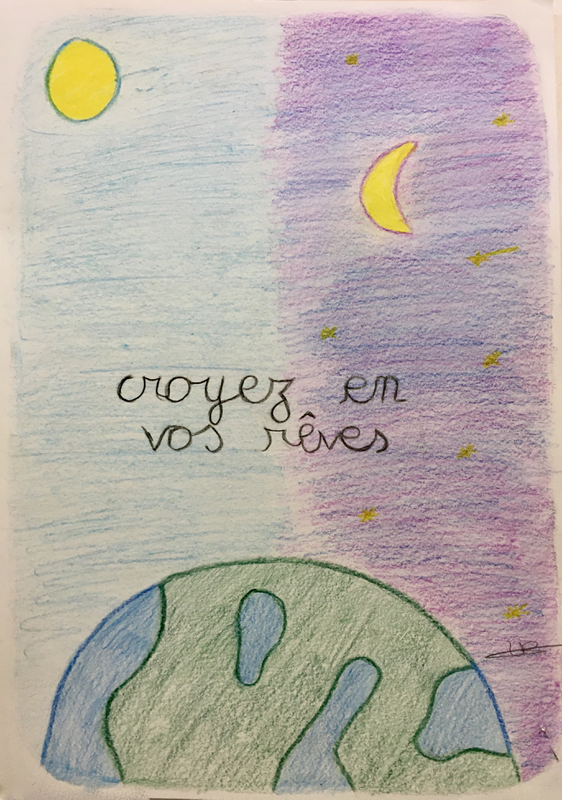 croyez en
vos rêves